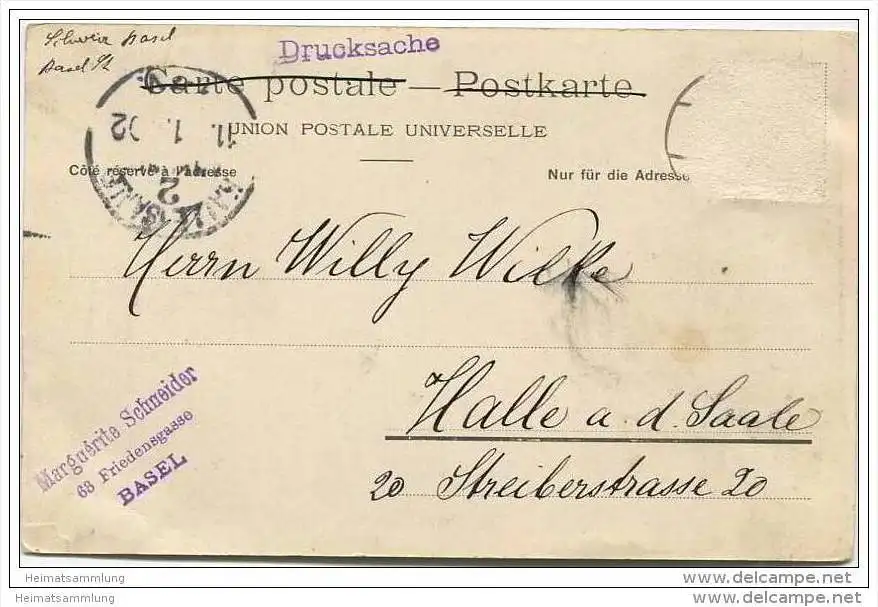 Schweiz Basel
Basel
Drucksache
Carte postale — Postkarte.
UNION POSTALE UNIVERSELLE
Côté réservé à l'adresse
Nur für die Adresse
11. 1. 02
2
Herrn Willy Wilke
Halle a. d. Saale
20 Streiberstrasse 20
Marguérite Schneider
63 Friedensgasse
BASEL
Heimatsammlung
www.delcampe.net
Heimatsammlung
www.delcampe.net